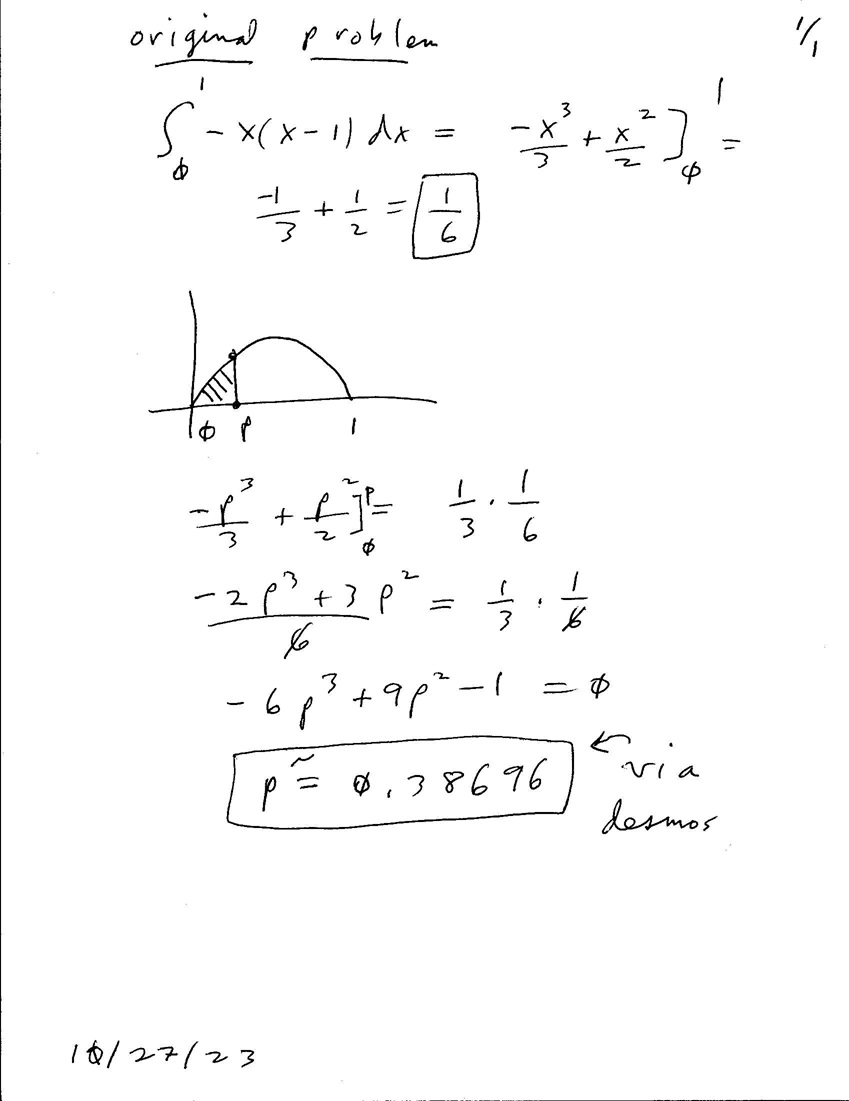 original problem
1/1
∫_ϕ^1 -x(x-1) dx = -x^3/3 + x^2/2 ]_ϕ^1 =
-1/3 + 1/2 = 1/6
ϕ p 1
-p^3/3 + p^2/2 ]_ϕ^p = 1/3 · 1/6
-2p^3+3p^2/6 = 1/3 · 1/6
-6p^3+9p^2-1 = ϕ
p ≅ ϕ.38696 ← via
desmos
1ϕ/27/23